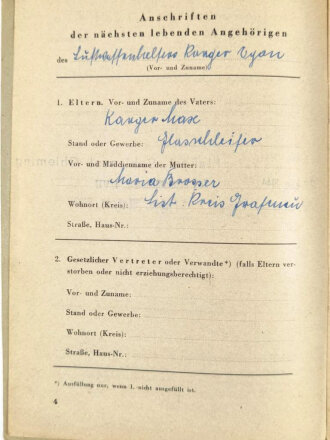 Anschriften
der nächsten lebenden Angehörigen
des Luftwaffenhelfers Karger
(Vor- und Zuname)
1. Eltern. Vor- und Zuname des Vaters:
Karger Max
Stand oder Gewerbe: Glasschleifer
Vor- und Mädchenname der Mutter:
Maria
Wohnort (Kreis): Kreis Grafenau
Straße, Haus-Nr.:
2. Gesetzlicher Vertreter oder Verwandte*) (falls Eltern ver-
storben oder nicht erziehungsberechtigt):
Vor- und Zuname:
Stand oder Gewerbe:
Wohnort (Kreis):
Straße, Haus-Nr.:
*) Ausfüllung nur, wenn 1. nicht ausgefüllt ist.
4